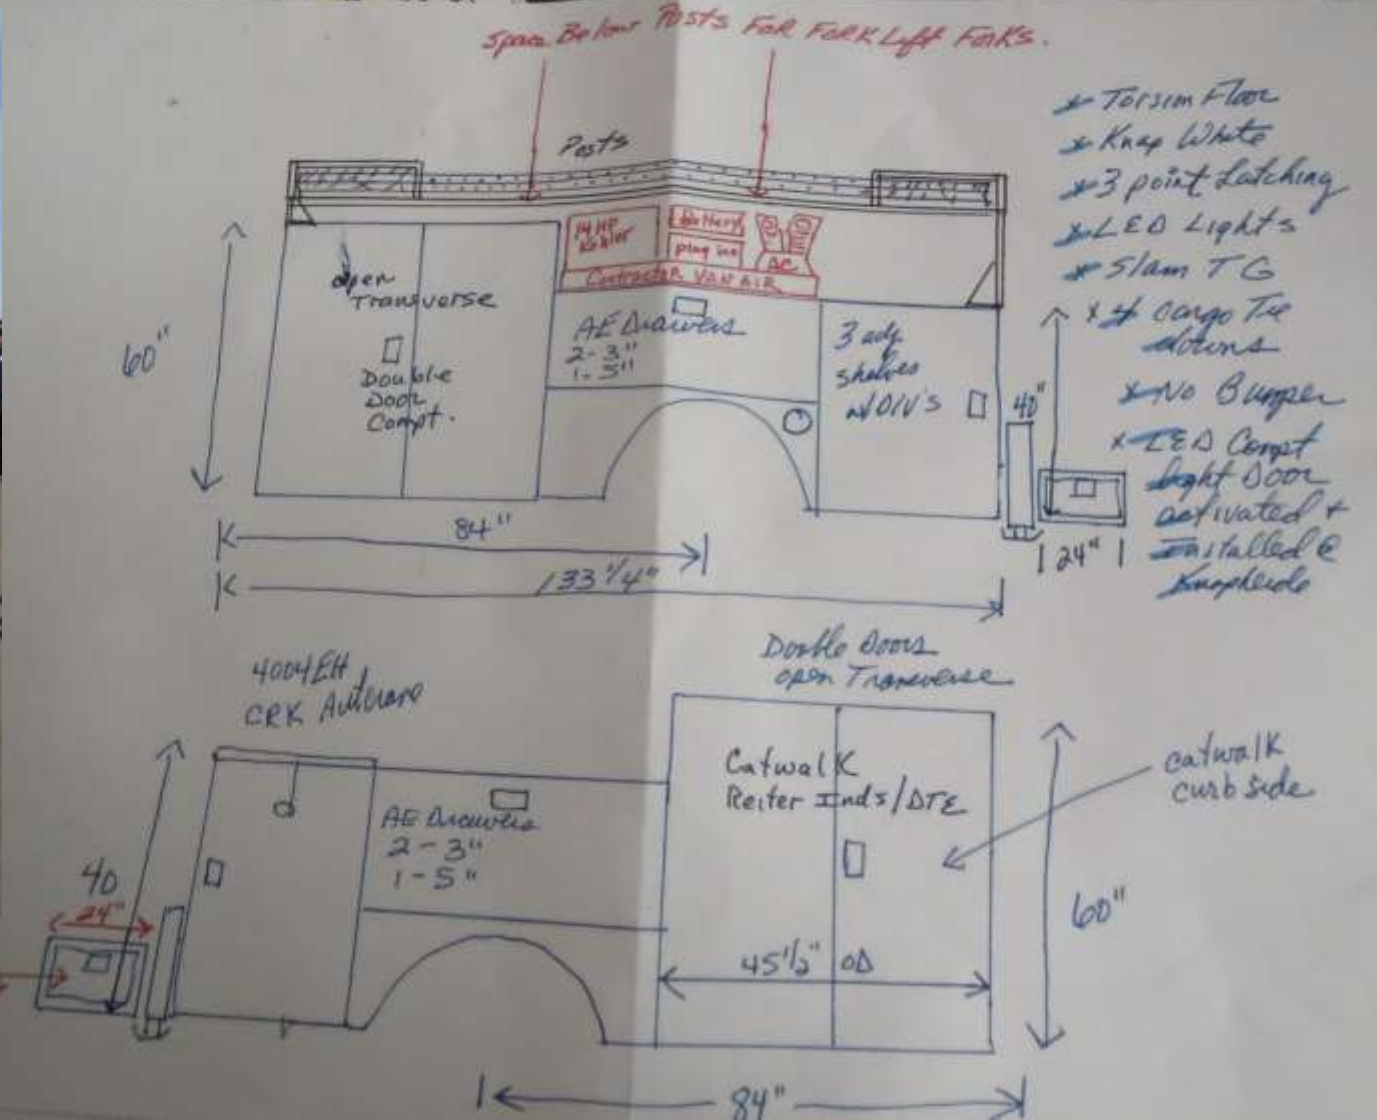 Space Below Posts FOR FORK Lift FORKS.
Posts
14 HP
Kohler
Battery
plug ins
AC
Contractor VAN AIR
open
Transverse
60"
Double
Door
Compt.
AE Drawers
2 - 3"
1 - 5"
3 adj
shelves
w/DIV'S
40"
24"
84"
133 1/4"
* Torsion Floor
* Knap White
* 3 point Latching
* LED Lights
* Slam TG
* 4 cargo Tie
downs
* No Bumper
* LED Compt
light Door
activated +
installed @
4004EH
CRK
Double Doors
open Transverse
Catwalk
Reiter Inds/DTE
catwalk
curb side
AE Drawers
2 - 3"
1 - 5"
40
24"
45 1/2" OD
60"
84"